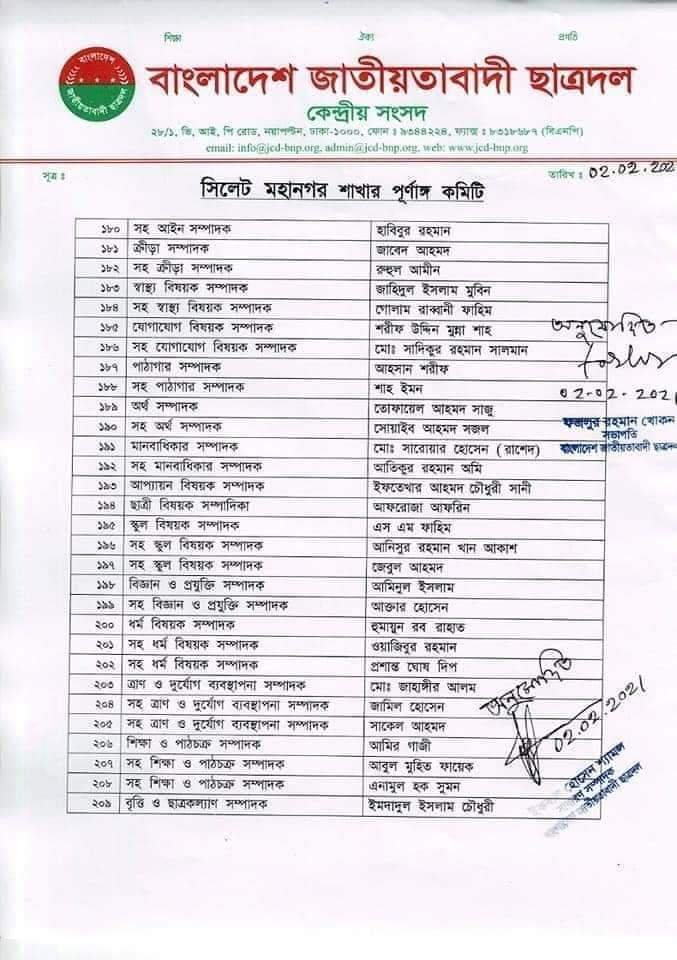 শিক্ষা ঐক্য প্রগতি
বাংলাদেশ জাতীয়তাবাদী ছাত্রদল
বাংলাদেশ জাতীয়তাবাদী ছাত্রদল
কেন্দ্রীয় সংসদ
২৮/১, ভি, আই, পি রোড, নয়াপল্টন, ঢাকা-১০০০, ফোন : ৯৩৪৪২২৪, ফ্যাক্স : ৮৩১৮৬৮৭ (বিএনপি)
email: info@jcd-bnp.org, admin@jcd-bnp.org, web: www.jcd-bnp.org
সূত্র : তারিখ : 02.02.202
সিলেট মহানগর শাখার পূর্ণাঙ্গ কমিটি
১৮০ সহ আইন সম্পাদক হাবিবুর রহমান
১৮১ ক্রীড়া সম্পাদক জাবেদ আহমদ
১৮২ সহ ক্রীড়া সম্পাদক রুহুল আমীন
১৮৩ স্বাস্থ্য বিষয়ক সম্পাদক জাহিদুল ইসলাম মুবিন
১৮৪ সহ স্বাস্থ্য বিষয়ক সম্পাদক গোলাম রাব্বানী ফাহিম
১৮৫ যোগাযোগ বিষয়ক সম্পাদক শরীফ উদ্দিন মুন্না শাহ
১৮৬ সহ যোগাযোগ বিষয়ক সম্পাদক মোঃ সাদিকুর রহমান সালমান
১৮৭ পাঠাগার সম্পাদক আহসান শরীফ
১৮৮ সহ পাঠাগার সম্পাদক শাহ ইমন
১৮৯ অর্থ সম্পাদক তোফায়েল আহমদ সাজু
১৯০ সহ অর্থ সম্পাদক সোয়াইব আহমদ সজল
১৯১ মানবাধিকার সম্পাদক মোঃ সারোয়ার হোসেন (রাশেদ)
১৯২ সহ মানবাধিকার সম্পাদক আতিকুর রহমান অমি
১৯৩ আপ্যায়ন বিষয়ক সম্পাদক ইফতেখার আহমদ চৌধুরী সানী
১৯৪ ছাত্রী বিষয়ক সম্পাদিকা আফরোজা আফরিন
১৯৫ স্কুল বিষয়ক সম্পাদক এস এম ফাহিম
১৯৬ সহ স্কুল বিষয়ক সম্পাদক আনিসুর রহমান খান আকাশ
১৯৭ সহ স্কুল বিষয়ক সম্পাদক জেবুল আহমদ
১৯৮ বিজ্ঞান ও প্রযুক্তি সম্পাদক আমিনুল ইসলাম
১৯৯ সহ বিজ্ঞান ও প্রযুক্তি সম্পাদক আক্তার হোসেন
২০০ ধর্ম বিষয়ক সম্পাদক হুমায়ুন রব রাহাত
২০১ সহ ধর্ম বিষয়ক সম্পাদক ওয়াজিবুর রহমান
২০২ সহ ধর্ম বিষয়ক সম্পাদক প্রশান্ত ঘোষ দিপ
২০৩ ত্রাণ ও দুর্যোগ ব্যবস্থাপনা সম্পাদক মোঃ জাহাঙ্গীর আলম
২০৪ সহ ত্রাণ ও দুর্যোগ ব্যবস্থাপনা সম্পাদক জামিল হোসেন
২০৫ সহ ত্রাণ ও দুর্যোগ ব্যবস্থাপনা সম্পাদক সাকেল আহমদ
২০৬ শিক্ষা ও পাঠচক্র সম্পাদক আমির গাজী
২০৭ সহ শিক্ষা ও পাঠচক্র সম্পাদক আবুল মুহিত ফায়েক
২০৮ সহ শিক্ষা ও পাঠচক্র সম্পাদক এনামুল হক সুমন
২০৯ বৃত্তি ও ছাত্রকল্যাণ সম্পাদক ইমদাদুল ইসলাম চৌধুরী
অনুমোদিত
02-02-2021
ফজলুর রহমান খোকন
সভাপতি
বাংলাদেশ জাতীয়তাবাদী ছাত্রদল
অনুমোদিত
02.02.2021
হোসেন শ্যামল
সম্পাদক
জাতীয়তাবাদী ছাত্রদল